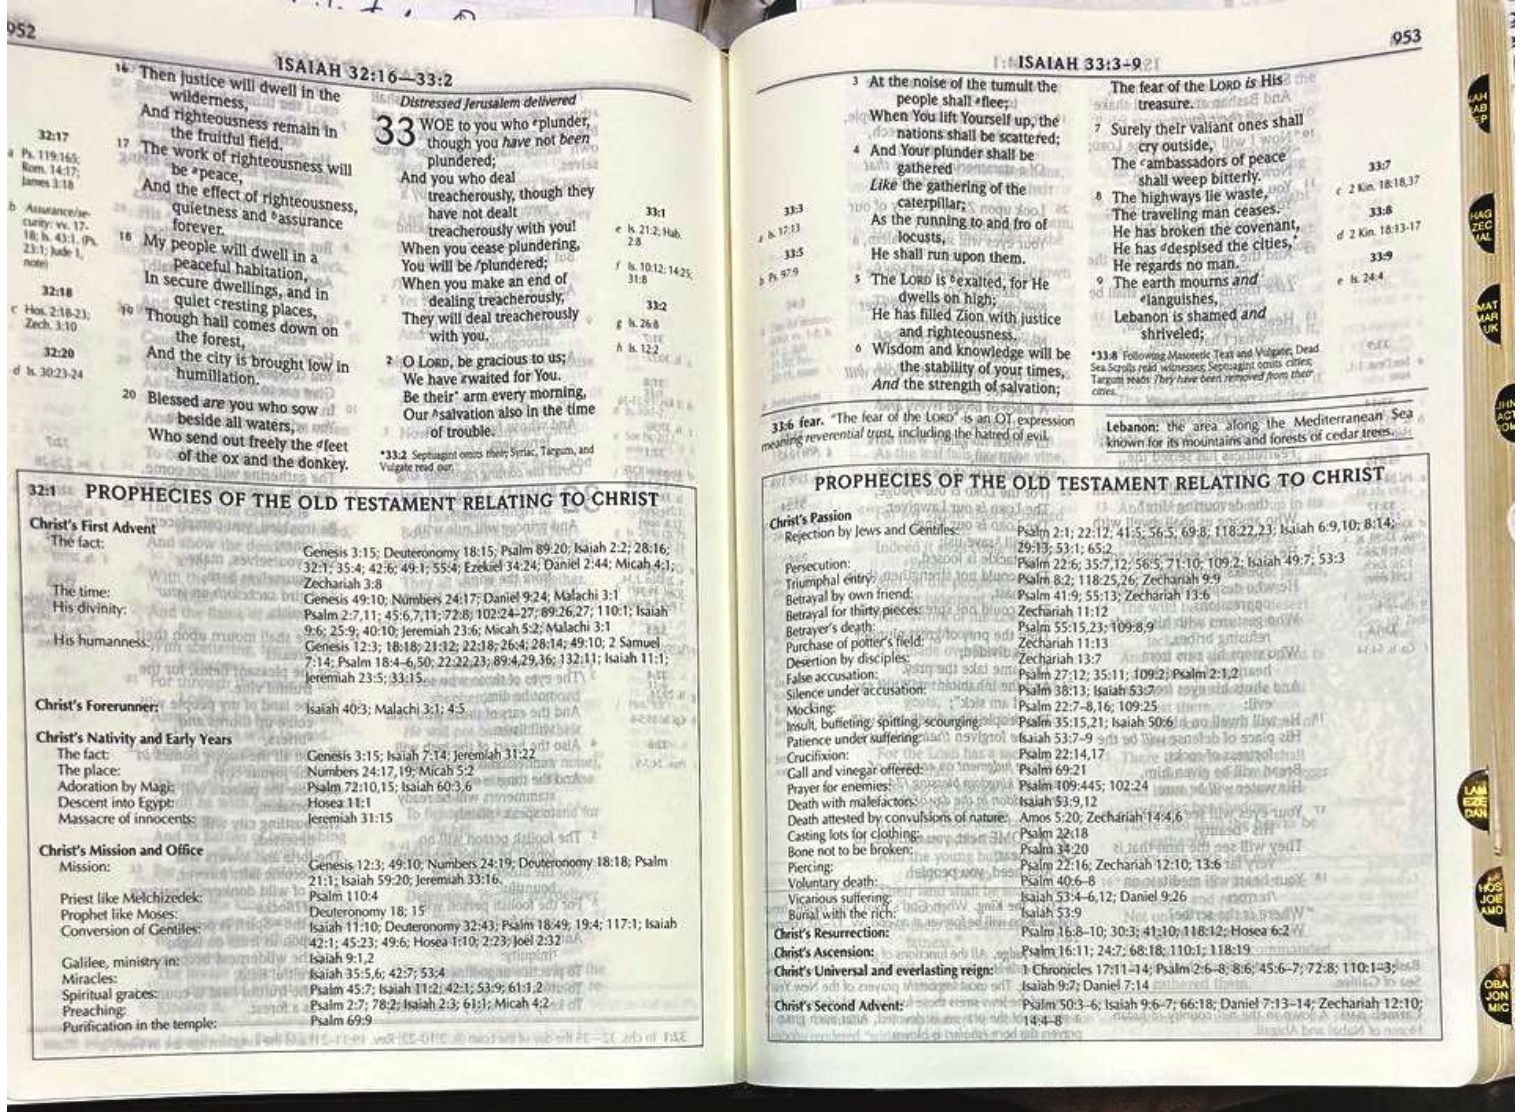 952
ISAIAH 32:16—33:2
16 Then justice will dwell in the
wilderness,
And righteousness remain in
the fruitful field.
17 The work of righteousness will
be a peace,
And the effect of righteousness,
quietness and b assurance
forever.
18 My people will dwell in a
peaceful habitation,
In secure dwellings, and in
quiet c resting places,
19 Though hail comes down on
the forest,
And the city is brought low in
humiliation.
20 Blessed are you who sow
beside all waters,
Who send out freely the d feet
of the ox and the donkey.
32:17
a Ps. 119:165;
Rom. 14:17;
James 3:18
b Assurance/se-
curity: vv. 17-
18; Is. 43:1. (Ps.
23:1; Jude 1,
note)
32:18
c Hos. 2:18-23;
Zech. 3:10
32:20
d Is. 30:23-24
Distressed Jerusalem delivered
33 WOE to you who e plunder,
though you have not been
plundered;
And you who deal
treacherously, though they
have not dealt
treacherously with you!
When you cease plundering,
You will be f plundered;
When you make an end of
dealing treacherously,
They will deal treacherously
with you.
2 O LORD, be gracious to us;
We have g waited for You.
Be their* arm every morning,
Our h salvation also in the time
of trouble.
*33:2 Septuagint omits their; Syriac, Targum, and
Vulgate read our.
33:1
e Is. 21:2; Hab.
2:8
f Is. 10:12; 14:25;
31:8
33:2
g Is. 26:8
h Is. 12:2
32:1 PROPHECIES OF THE OLD TESTAMENT RELATING TO CHRIST
Christ's First Advent
The fact: Genesis 3:15; Deuteronomy 18:15; Psalm 89:20; Isaiah 2:2; 28:16;
32:1; 35:4; 42:6; 49:1; 55:4; Ezekiel 34:24; Daniel 2:44; Micah 4:1;
Zechariah 3:8
The time: Genesis 49:10; Numbers 24:17; Daniel 9:24; Malachi 3:1
His divinity: Psalm 2:7,11; 45:6,7,11; 72:8; 102:24-27; 89:26,27; 110:1; Isaiah
9:6; 25:9; 40:10; Jeremiah 23:6; Micah 5:2; Malachi 3:1
His humanness: Genesis 12:3; 18:18; 21:12; 22:18; 26:4; 28:14; 49:10; 2 Samuel
7:14; Psalm 18:4–6,50; 22:22,23; 89:4,29,36; 132:11; Isaiah 11:1;
Jeremiah 23:5; 33:15
Christ's Forerunner: Isaiah 40:3; Malachi 3:1; 4:5
Christ's Nativity and Early Years
The fact: Genesis 3:15; Isaiah 7:14; Jeremiah 31:22
The place: Numbers 24:17,19; Micah 5:2
Adoration by Magi: Psalm 72:10,15; Isaiah 60:3,6
Descent into Egypt: Hosea 11:1
Massacre of innocents: Jeremiah 31:15
Christ's Mission and Office
Mission: Genesis 12:3; 49:10; Numbers 24:19; Deuteronomy 18:18; Psalm
21:1; Isaiah 59:20; Jeremiah 33:16
Priest like Melchizedek: Psalm 110:4
Prophet like Moses: Deuteronomy 18; 15
Conversion of Gentiles: Isaiah 11:10; Deuteronomy 32:43; Psalm 18:49; 19:4; 117:1; Isaiah
42:1; 45:23; 49:6; Hosea 1:10; 2:23; Joel 2:32
Galilee, ministry in: Isaiah 9:1,2
Miracles: Isaiah 35:5,6; 42:7; 53:4
Spiritual graces: Psalm 45:7; Isaiah 11:2; 42:1; 53:9; 61:1,2
Preaching: Psalm 2:7; 78:2; Isaiah 2:3; 61:1; Micah 4:2
Purification in the temple: Psalm 69:9
953
ISAIAH 33:3–9
3 At the noise of the tumult the
people shall a flee;
When You lift Yourself up, the
nations shall be scattered;
4 And Your plunder shall be
gathered
Like the gathering of the
caterpillar;
As the running to and fro of
locusts,
He shall run upon them.
5 The LORD is b exalted, for He
dwells on high;
He has filled Zion with justice
and righteousness.
6 Wisdom and knowledge will be
the stability of your times,
And the strength of salvation;
33:3
a Is. 17:13
33:5
b Ps. 97:9
The fear of the LORD is His
treasure.
7 Surely their valiant ones shall
cry outside,
The c ambassadors of peace
shall weep bitterly.
8 The highways lie waste,
The traveling man ceases.
He has broken the covenant,
He has d despised the cities,*
He regards no man.
9 The earth mourns and
e languishes,
Lebanon is shamed and
shriveled;
*33:8 Following Masoretic Text and Vulgate; Dead
Sea Scrolls read witnesses; Septuagint omits cities;
Targum reads They have been removed from their
cities.
33:7
c 2 Kin. 18:18,37
33:8
d 2 Kin. 18:13-17
33:9
e Is. 24:4
33:6 fear. "The fear of the LORD" is an OT expression
meaning reverential trust, including the hatred of evil.
Lebanon: the area along the Mediterranean Sea
known for its mountains and forests of cedar trees.
PROPHECIES OF THE OLD TESTAMENT RELATING TO CHRIST
Christ's Passion
Rejection by Jews and Gentiles: Psalm 2:1; 22:12; 41:5; 56:5; 69:8; 118:22,23; Isaiah 6:9,10; 8:14;
29:13; 53:1; 65:2
Persecution: Psalm 22:6; 35:7,12; 56:5; 71:10; 109:2; Isaiah 49:7; 53:3
Triumphal entry: Psalm 8:2; 118:25,26; Zechariah 9:9
Betrayal by own friend: Psalm 41:9; 55:13; Zechariah 13:6
Betrayal for thirty pieces: Zechariah 11:12
Betrayer's death: Psalm 55:15,23; 109:8,9
Purchase of potter's field: Zechariah 11:13
Desertion by disciples: Zechariah 13:7
False accusation: Psalm 27:12; 35:11; 109:2; Psalm 2:1,2
Silence under accusation: Psalm 38:13; Isaiah 53:7
Mocking: Psalm 22:7–8,16; 109:25
Insult, buffeting, spitting, scourging: Psalm 35:15,21; Isaiah 50:6
Patience under suffering: Isaiah 53:7–9
Crucifixion: Psalm 22:14,17
Gall and vinegar offered: Psalm 69:21
Prayer for enemies: Psalm 109:445; 102:24
Death with malefactors: Isaiah 53:9,12
Death attested by convulsions of nature: Amos 5:20; Zechariah 14:4,6
Casting lots for clothing: Psalm 22:18
Bone not to be broken: Psalm 34:20
Piercing: Psalm 22:16; Zechariah 12:10; 13:6
Voluntary death: Psalm 40:6–8
Vicarious suffering: Isaiah 53:4–6,12; Daniel 9:26
Burial with the rich: Isaiah 53:9
Christ's Resurrection: Psalm 16:8–10; 30:3; 41:10; 118:12; Hosea 6:2
Christ's Ascension: Psalm 16:11; 24:7; 68:18; 110:1; 118:19
Christ's Universal and everlasting reign: 1 Chronicles 17:11–14; Psalm 2:6–8; 8:6; 45:6–7; 72:8; 110:1–3;
Isaiah 9:7; Daniel 7:14
Christ's Second Advent: Psalm 50:3–6; Isaiah 9:6–7; 66:18; Daniel 7:13–14; Zechariah 12:10;
14:4–8
HAG
ZEC
MAL
MAT
MAR
LUK
JHN
ACT
LAM
EZE
DAN
HOS
JOE
AMO
OBA
JON
MIC